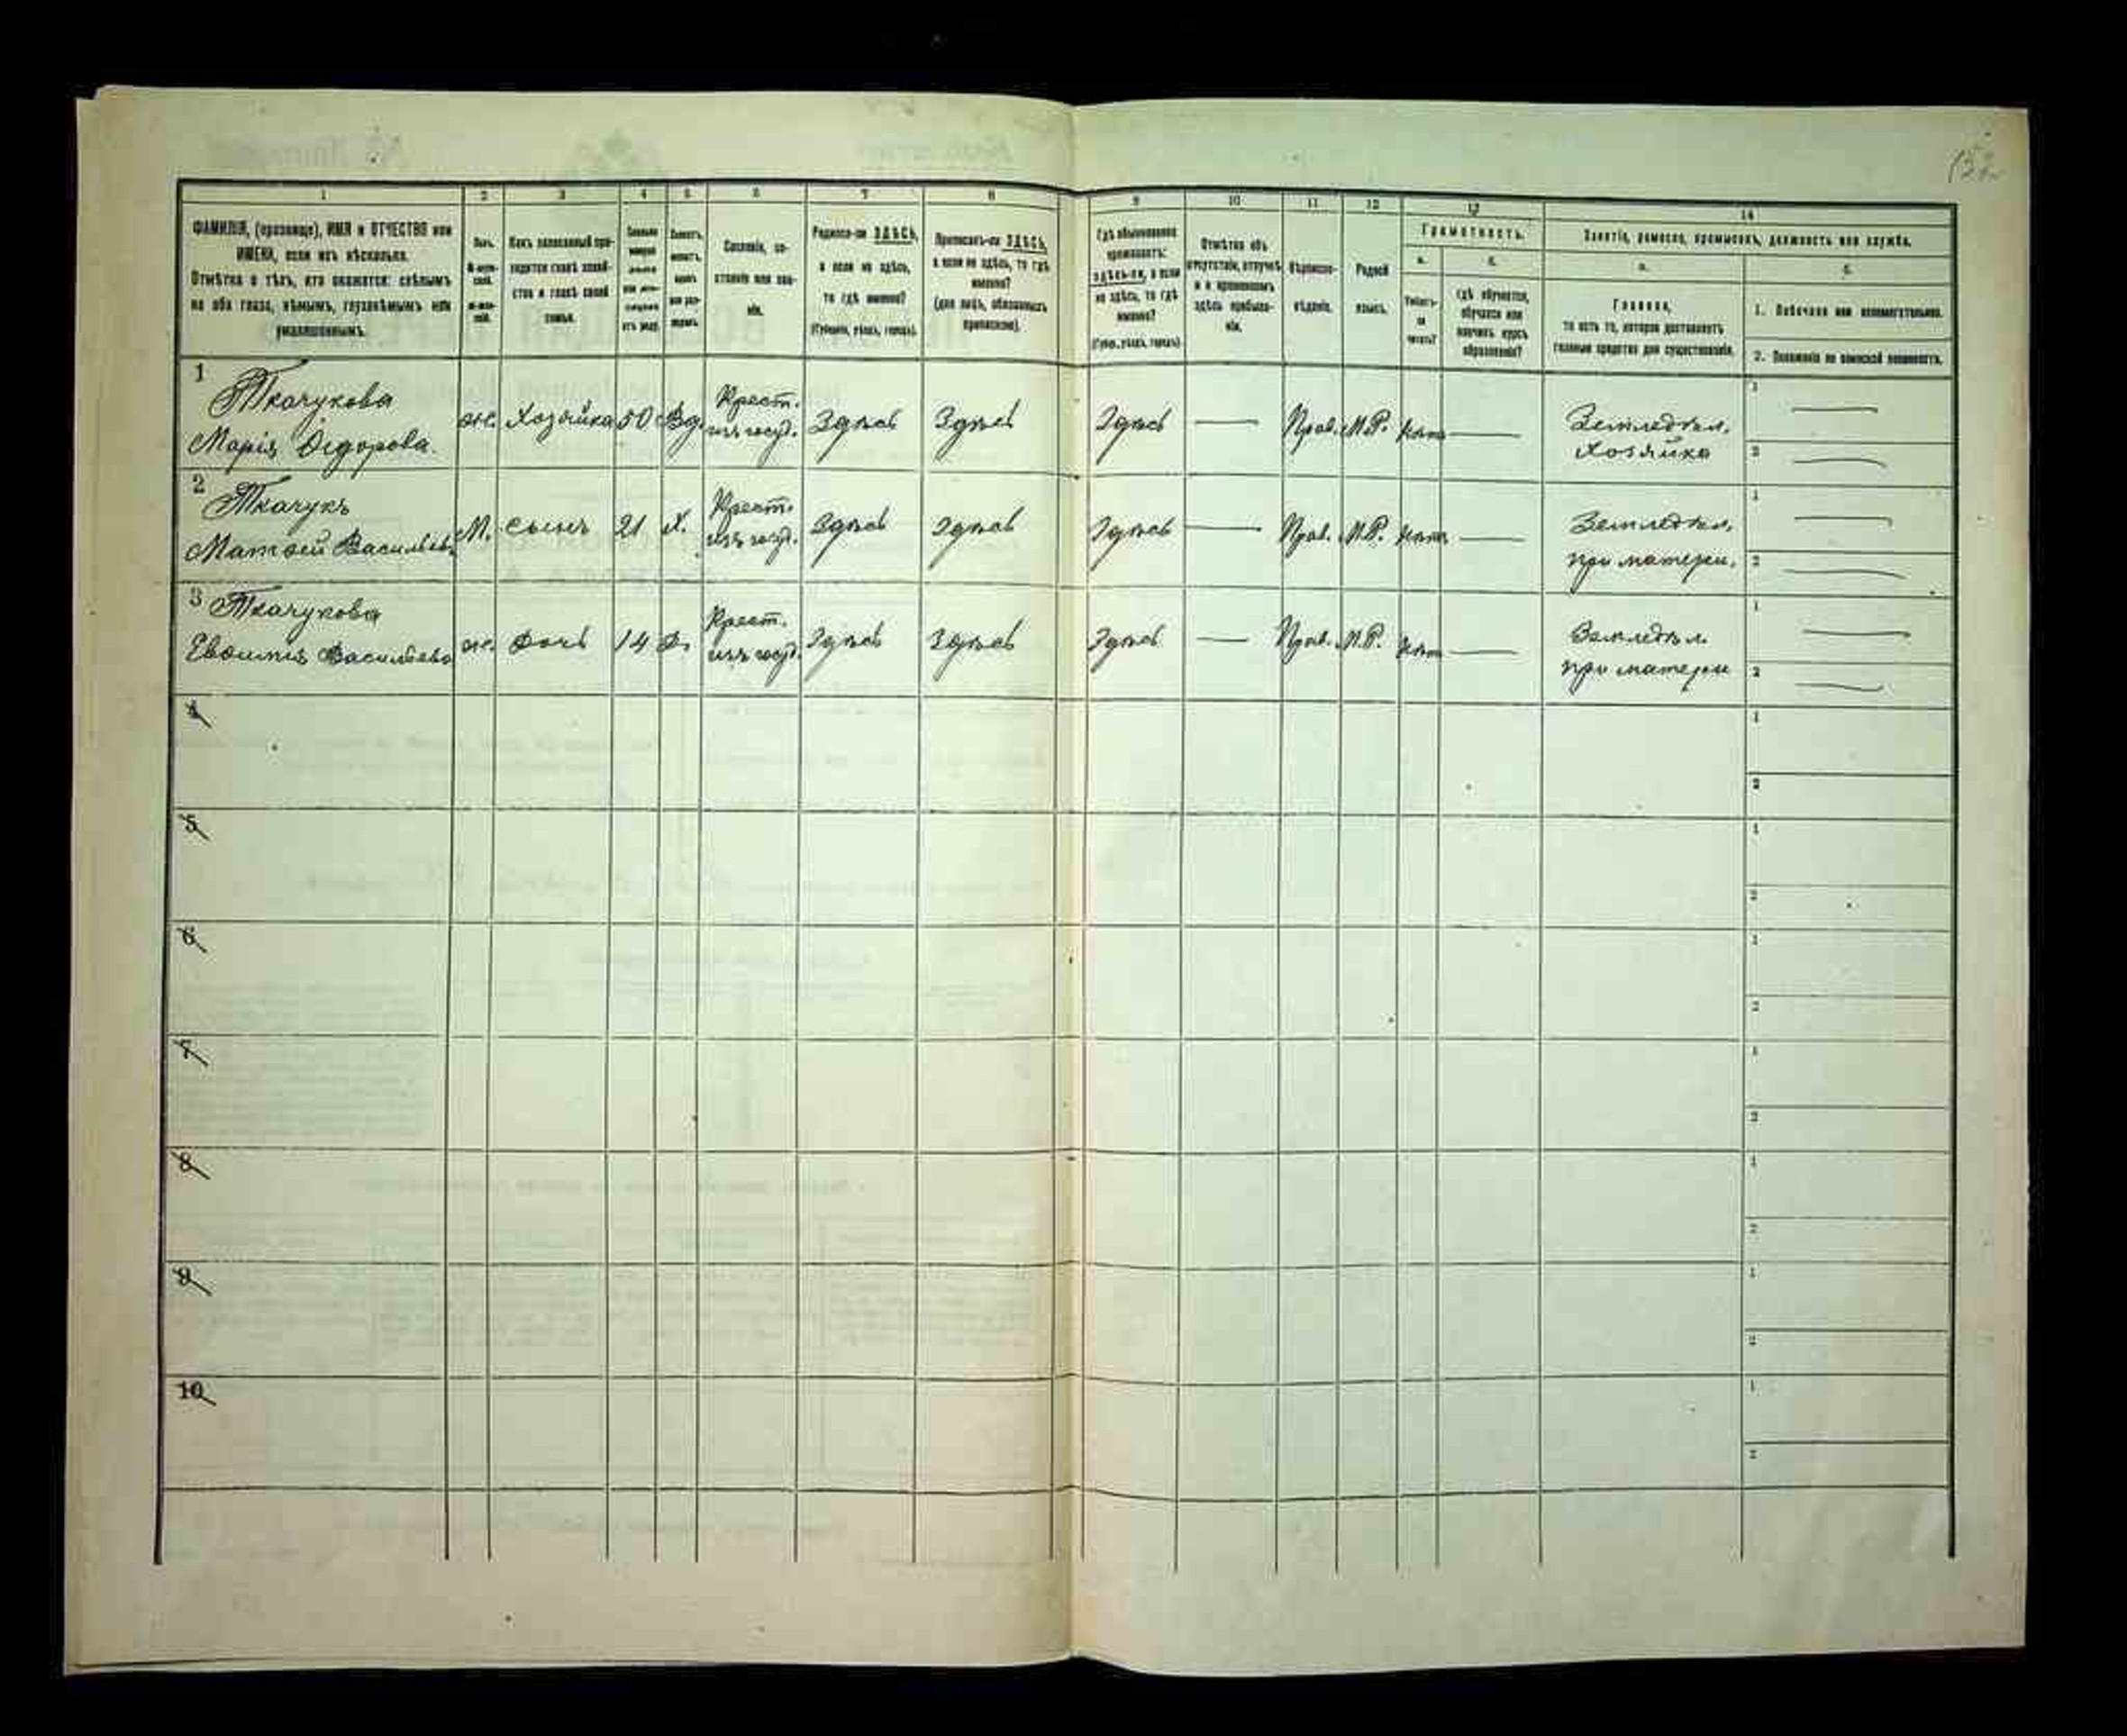 132
1 2 3 4 5 6 7 8 9 10 11 12 13 14
ФАМИЛІЯ, (прозвище), ИМЯ и ОТЧЕСТВО или
ИМЕНА, если ихъ нѣсколько.
Отмѣтка о тѣхъ, кто окажется: слѣпымъ
на оба глаза, нѣмымъ, глухонѣмымъ или
умалишеннымъ.
Полъ.
Какъ записанный при-
ходится главѣ хозяй-
ства и главѣ своей
семьи.
Сословіе, со-
стояніе или зва-
ніе.
Родился-ли ЗДѢСЬ,
а если не здѣсь,
то гдѣ именно?
(Губернія, уѣздъ, городъ).
Приписанъ-ли ЗДѢСЬ,
а если не здѣсь, то гдѣ
именно?
(для лицъ, обязанныхъ
припискою).
Гдѣ обыкновенно
проживаетъ:
здѣсь-ли, а если
не здѣсь, то гдѣ
именно?
(Губер., уѣздъ, городъ)
Отмѣтка объ
отсутствіи, отлучкѣ
и о временномъ
здѣсь пребыва-
ніи.
Вѣроиспо-
вѣданіе.
Родной
языкъ.
Грамотность.
а. б.
Умѣетъ-
ли
читать?
гдѣ обучается,
обучался или
кончилъ курсъ
образованія?
Занятіе, ремесло, промыселъ, должность или служба.
а. б.
Главное,
то есть то, которое доставляетъ
главныя средства для существованія.
1. Побочное или вспомогательное.
2. Положеніе по воинской повинности.
1 Ткачукова
Марія Ѳедорова. ж. Хозяйка 50 Вд. Крест. изъ госуд. Здѣсь Здѣсь Здѣсь — Прав. М.Р. нѣтъ — Земледѣл. Хозяйка 1 — 2 —
2 Ткачукъ
Матвей Васильевъ М. сынъ 21 Х. Крест. изъ госуд. Здѣсь Здѣсь Здѣсь — Прав. М.Р. нѣтъ — Земледѣл. при матери. 1 — 2 —
3 Ткачукова
Евѳимія Васильева ж. дочь 14 Д. Крест. изъ госуд. Здѣсь Здѣсь Здѣсь — Прав. М.Р. нѣтъ — Земледѣл. при матери 1 — 2 —
4 1 2
5 1 2
6 1 2
7 1 2
8 1 2
9 1 2
10 1 2